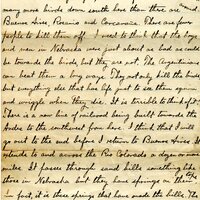 many more birds down south here than there are around
Buenos Aires, Rosario and Concarania. There are fewer
people to kill them off. I used to think that the boys
and men in Nebraska were just about as bad as could
be towards the birds, but they are not. The Argentinians
can beat them a long ways. They not only kill the birds
but everything else that has life just to see them squirm
and wriggle when they die. It is terrible to think of it.
There is a new line of railroad being built towards the
Andes to the southwest from here. I think that I will
go out to the end before I return to Buenos Aires. It
extends to and across the Rio Colorado a dozen or more
miles. It passes through sand hills something like
those in Nebraska but they have springs on their
In fact, it is these springs that have made the hills. The